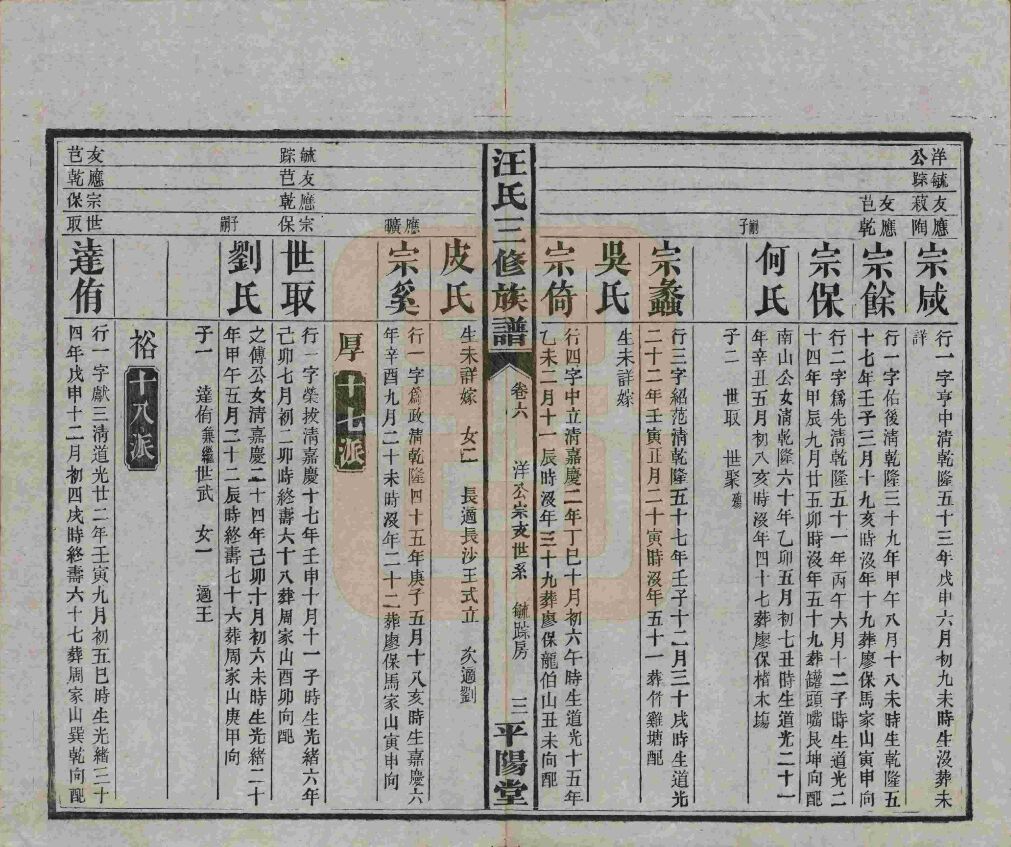 洋毓友應
公踪菽陶
宗咸
行一字亨中清乾隆五十三年戊申六月初九未時生沒葬未
詳
友應
芭乾
宗餘
行一字佑後清乾隆三十九年甲午八月十八未時生乾隆五
十七年壬子三月十九亥時沒年十九葬廖保馬家山寅申向
宗保
行二字為先清乾隆五十一年丙午六月十二子時生道光二
十四年甲辰九月廿五卯時沒年五十九葬罐頭嘴艮坤向配
何氏
南山公女清乾隆六十年乙卯五月初七丑時生道光二十一
年辛丑五月初八亥時沒年四十七葬廖保楮木塲
子二 世取 世聚
嗣子
宗蠡
行三字紹范清乾隆五十七年壬子十二月三十戌時生道光
二十二年壬寅正月二十寅時沒年五十一葬竹雞塘配
吳氏
生未詳嫁
宗倚
行四字中立清嘉慶二年丁巳十月初六午時生道光十五年
乙未二月十一辰時沒年三十九葬廖保龍伯山丑未向配
汪氏三修族譜
卷六 洋公宗支世系 毓踪房 三
平陽堂
皮氏
生未詳嫁 女二 長適長沙王式立 次適劉
應
曠
宗奚
行一字為政清乾隆四十五年庚子五月十八亥時生嘉慶六
年辛酉九月二十未時沒年二十二葬廖保馬家山寅申向
厚 十七派
毓友應宗
踪芭乾保
世取
行一字榮拔清嘉慶十七年壬申十月十一子時生光緒六年
己卯七月初二卯時終壽六十八葬周家山酉卯向配
劉氏
之傳公女清嘉慶二十四年己卯十月初六未時生光緒二十
年甲午五月二十二辰時終壽七十六葬周家山庚甲向
子一 達侑兼繼世武 女一 適王
子嗣
裕 十八派
友應宗世
芭乾保取
達侑
行一字獻三清道光廿二年壬寅九月初五巳時生光緒三十
四年戊申十二月初四戌時終壽六十七葬周家山巽乾向配